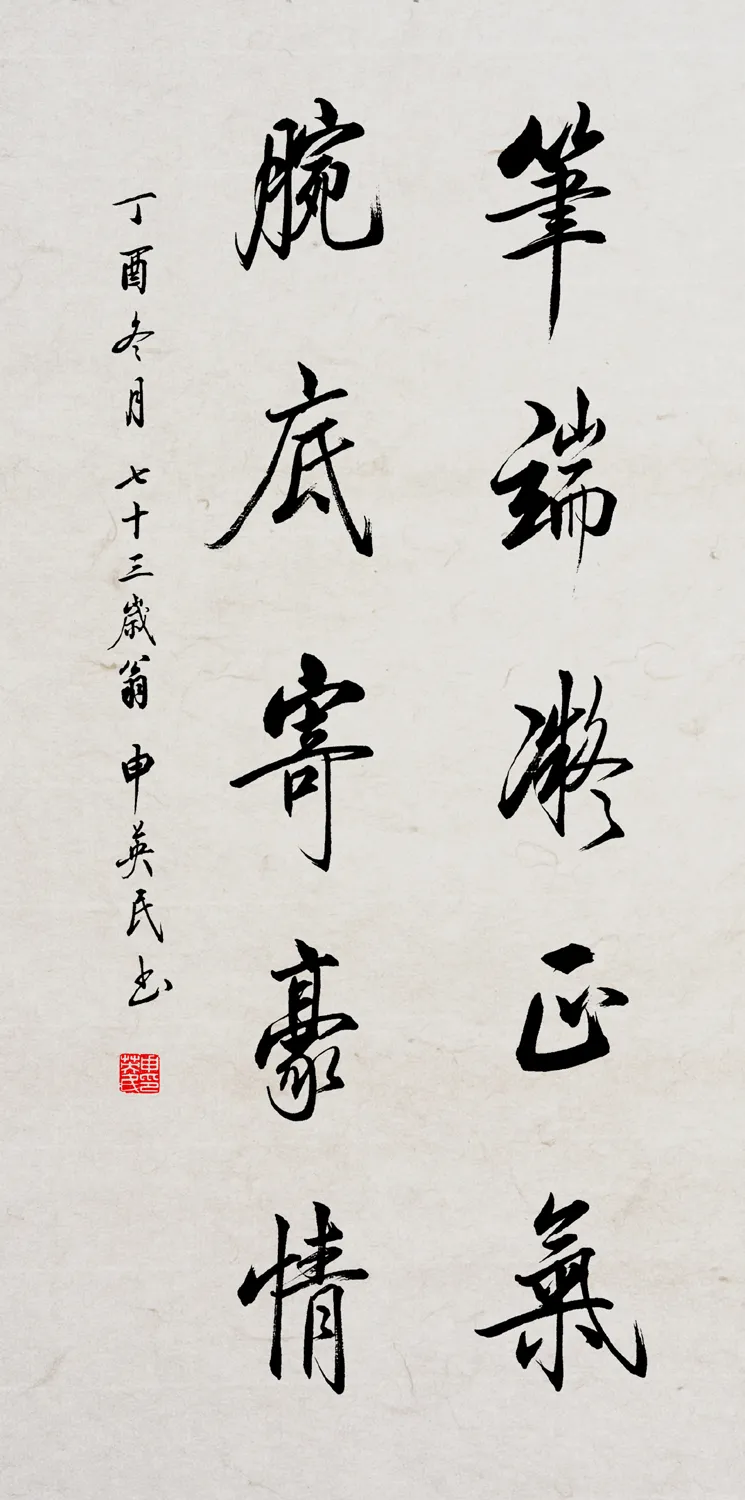 筆端凝正氣
腕底寄豪情
丁酉冬月七十三歲翁申英民书
申英民印